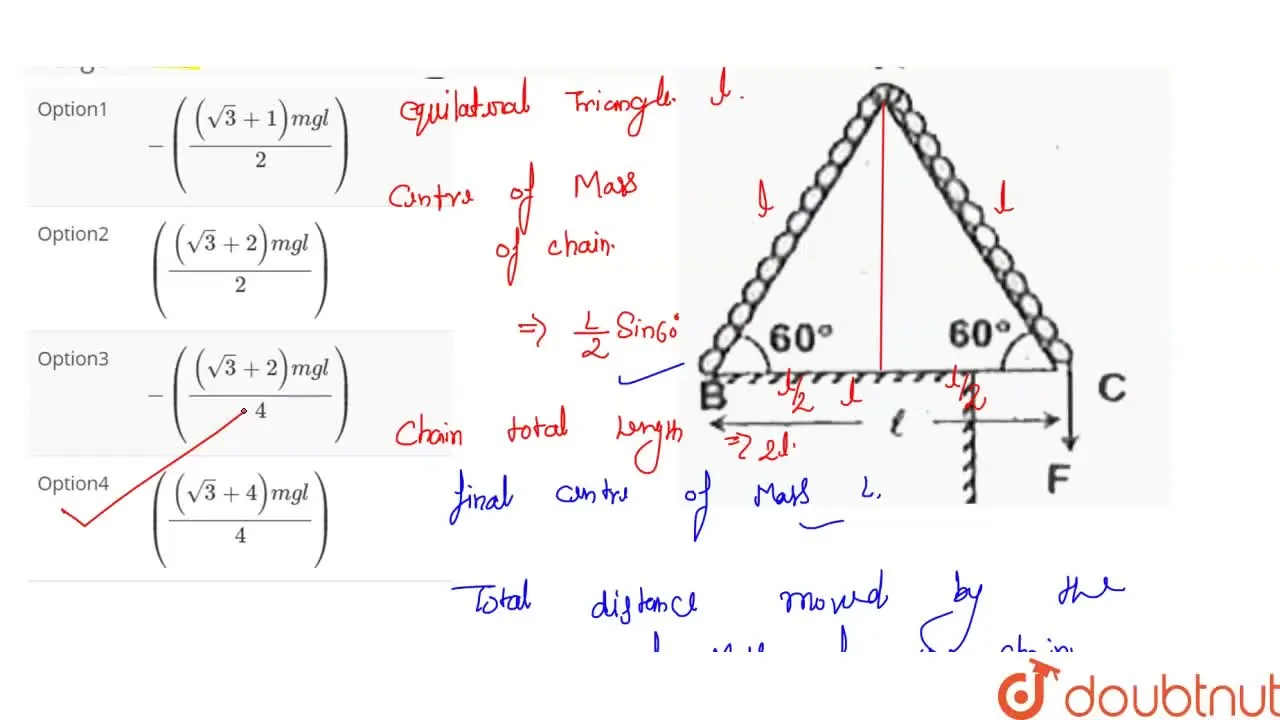 Option1
-((√3+1)mgl/2)
Option2
((√3+2)mgl/2)
Option3
-((√3+2)mgl/4)
Option4
((√3+4)mgl/4)
equilateral Triangle l.
Centre of Mass
of chain.
⇒ L/2 Sin60°
Chain total length ⇒ 2l.
final centre of Mass L.
Total distance moved by the
l
l
60°
60°
B
l/2
l
l/2
C
l
F
doubtnut